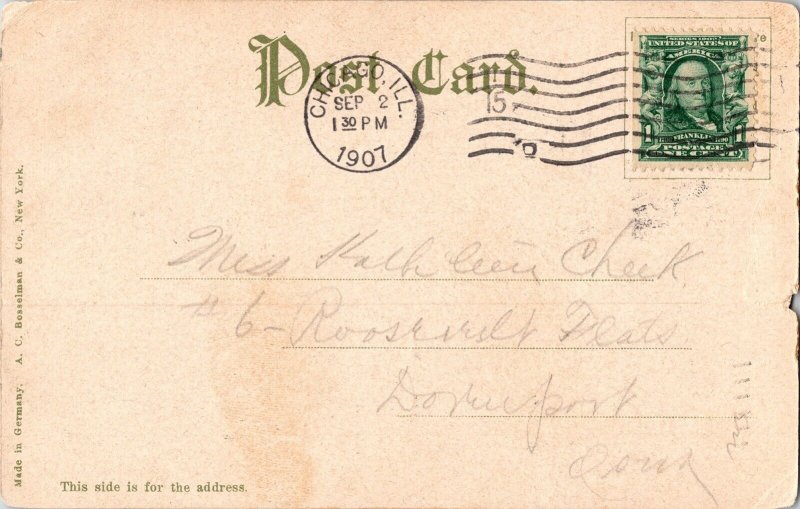 Post Card.
CHICAGO, ILL.
SEP 2
1 30 PM
1907
15
SERIES 1902
UNITED STATES OF
AMERICA
FRANKLIN
POSTAGE
1 ONE CENT 1
Miss Kathleen Cheek
#6 - Roosevelt Flats
Davenport
Iowa
Made in Germany. A. C. Bosselman & Co., New York.
This side is for the address.